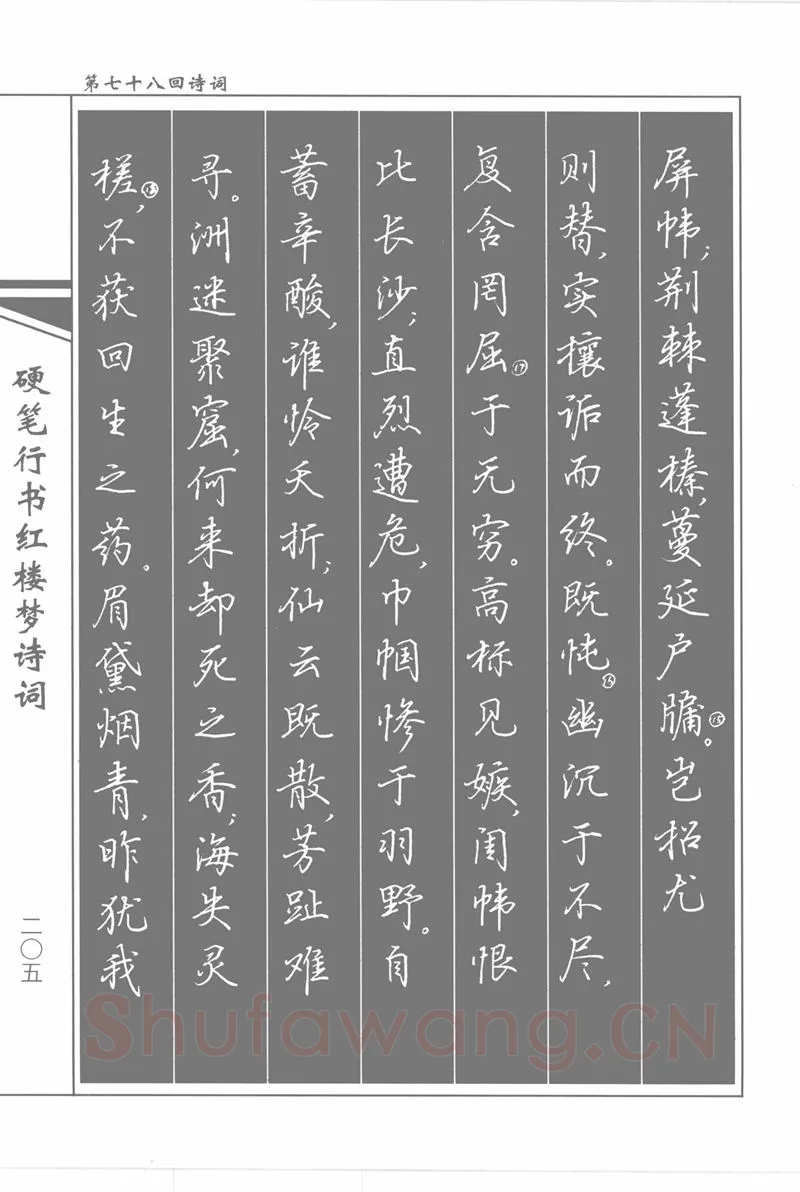 第七十八回诗词
屏帏;荆棘蓬榛,蔓延户牖⑮。岂招尤
则替,实攘诟而终。既忳⑯幽沉于不尽,
复含罔屈⑰于无穷。高标见嫉,闺帏恨
比长沙;直烈遭危,巾帼惨于羽野。自
蓄辛酸,谁怜夭折;仙云既散,芳趾难
寻。洲迷聚窟,何来却死之香;海失灵
槎⑱,不获回生之药。眉黛烟青,昨犹我
硬笔行书红楼梦诗词
二〇五
Shufawang.CN